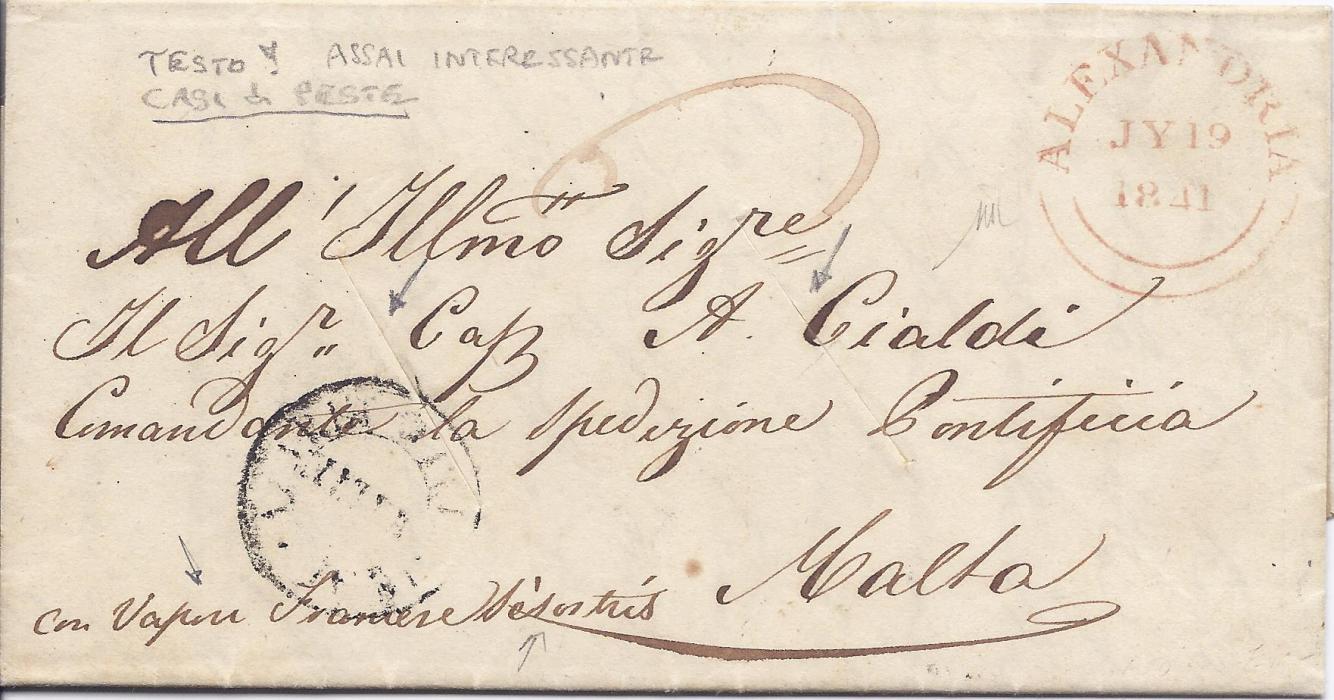 TESTO ASSAI INTERESSANTE
CASI di PESTE
ALEXANDRIA
JY 19
1841
All' Illmo Sigre
Il Sigr Cap A. Cialdi
Comandante la Spedizione Pontificia
Malta
con Vapore Francese Sésostris